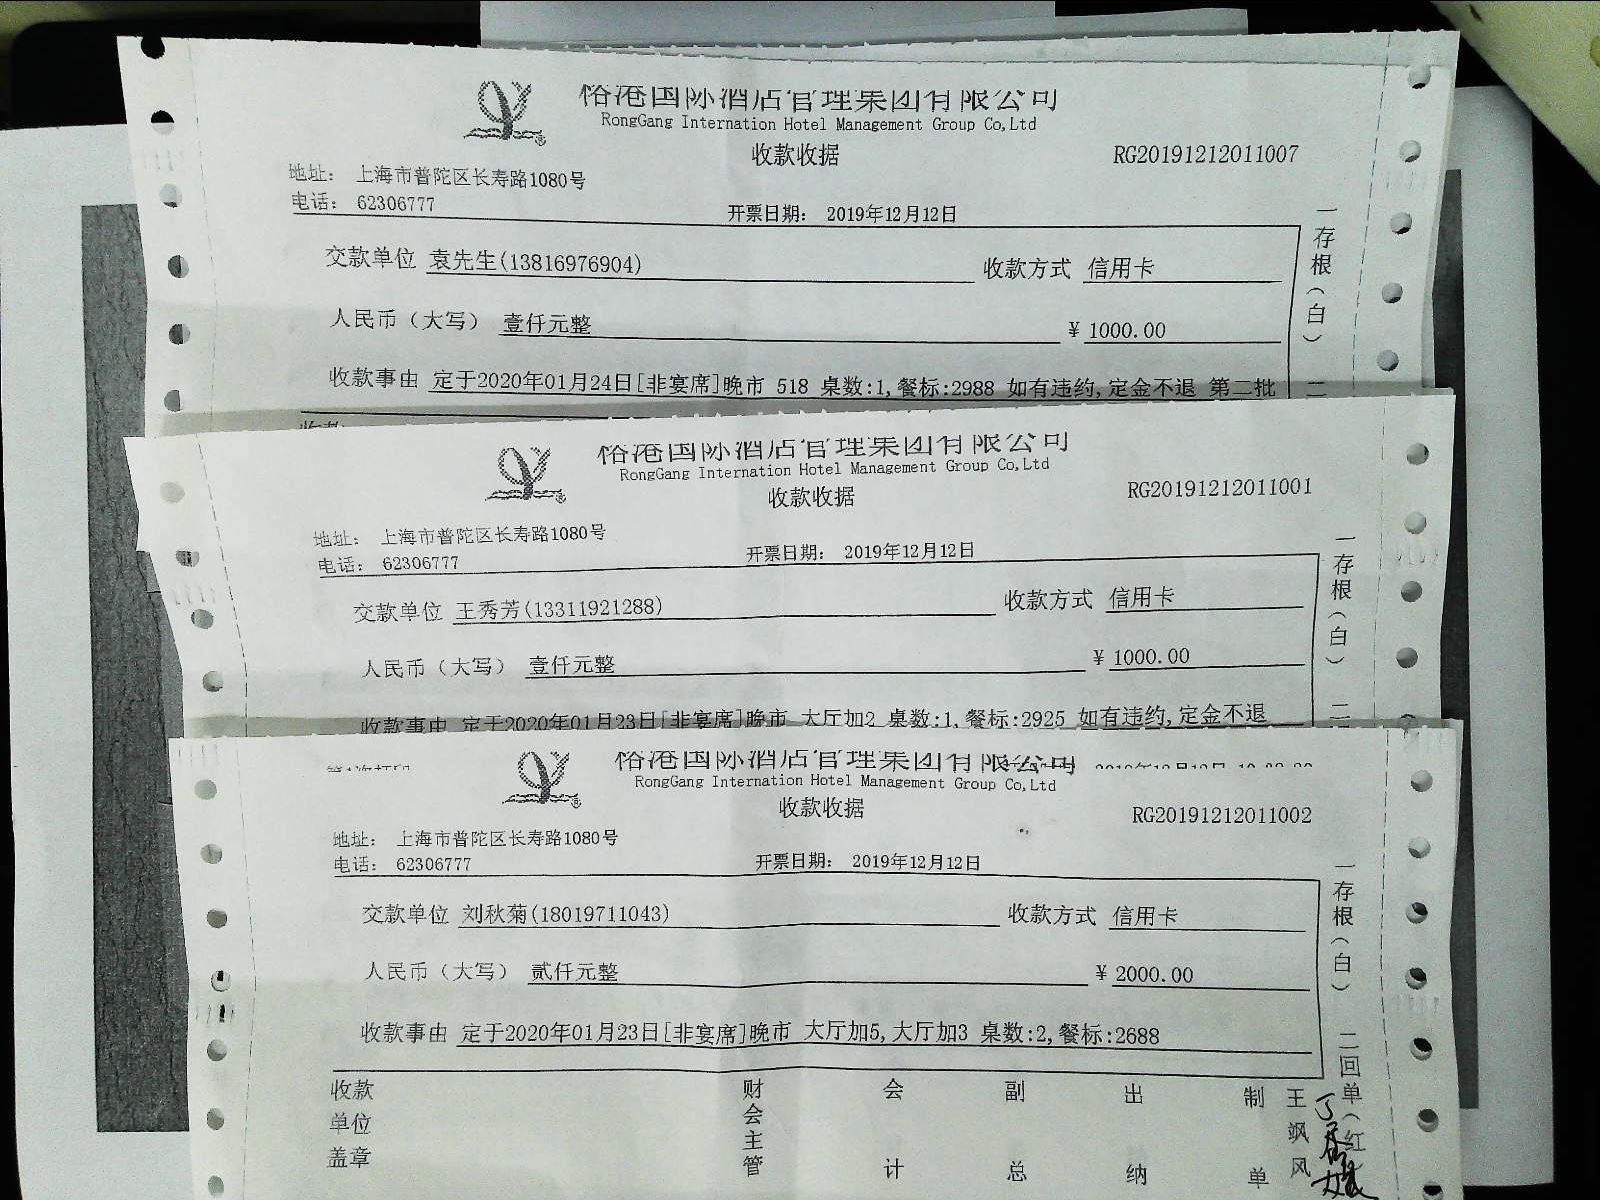 裕港国际酒店管理集团有限公司
RongGang Internation Hotel Management Group Co,Ltd
收款收据
RG20191212011007
地址： 上海市普陀区长寿路1080号
电话： 62306777
开票日期： 2019年12月12日
交款单位 袁先生(13816976904)
收款方式 信用卡
人民币（大写） 壹仟元整
¥ 1000.00
收款事由 定于2020年01月24日[非宴席]晚市 518 桌数:1,餐标:2988 如有违约,定金不退 第二批
一存根（白） 二
收款
裕港国际酒店管理集团有限公司
RongGang Internation Hotel Management Group Co,Ltd
收款收据
RG20191212011001
地址： 上海市普陀区长寿路1080号
电话： 62306777
开票日期： 2019年12月12日
交款单位 王秀芳(13311921288)
收款方式 信用卡
人民币（大写） 壹仟元整
¥ 1000.00
收款事由 定于2020年01月23日[非宴席]晚市 大厅加2 桌数:1,餐标:2925 如有违约,定金不退
一存根（白） 二
裕港国际酒店管理集团有限公司
RongGang Internation Hotel Management Group Co,Ltd
收款收据
RG20191212011002
地址： 上海市普陀区长寿路1080号
电话： 62306777
开票日期： 2019年12月12日
交款单位 刘秋菊(18019711043)
收款方式 信用卡
人民币（大写） 贰仟元整
¥ 2000.00
收款事由 定于2020年01月23日[非宴席]晚市 大厅加5,大厅加3 桌数:2,餐标:2688
一存根（白） 二回单（红
收款单位盖章
财会主管
会计
副总
出纳
制单
王飒风